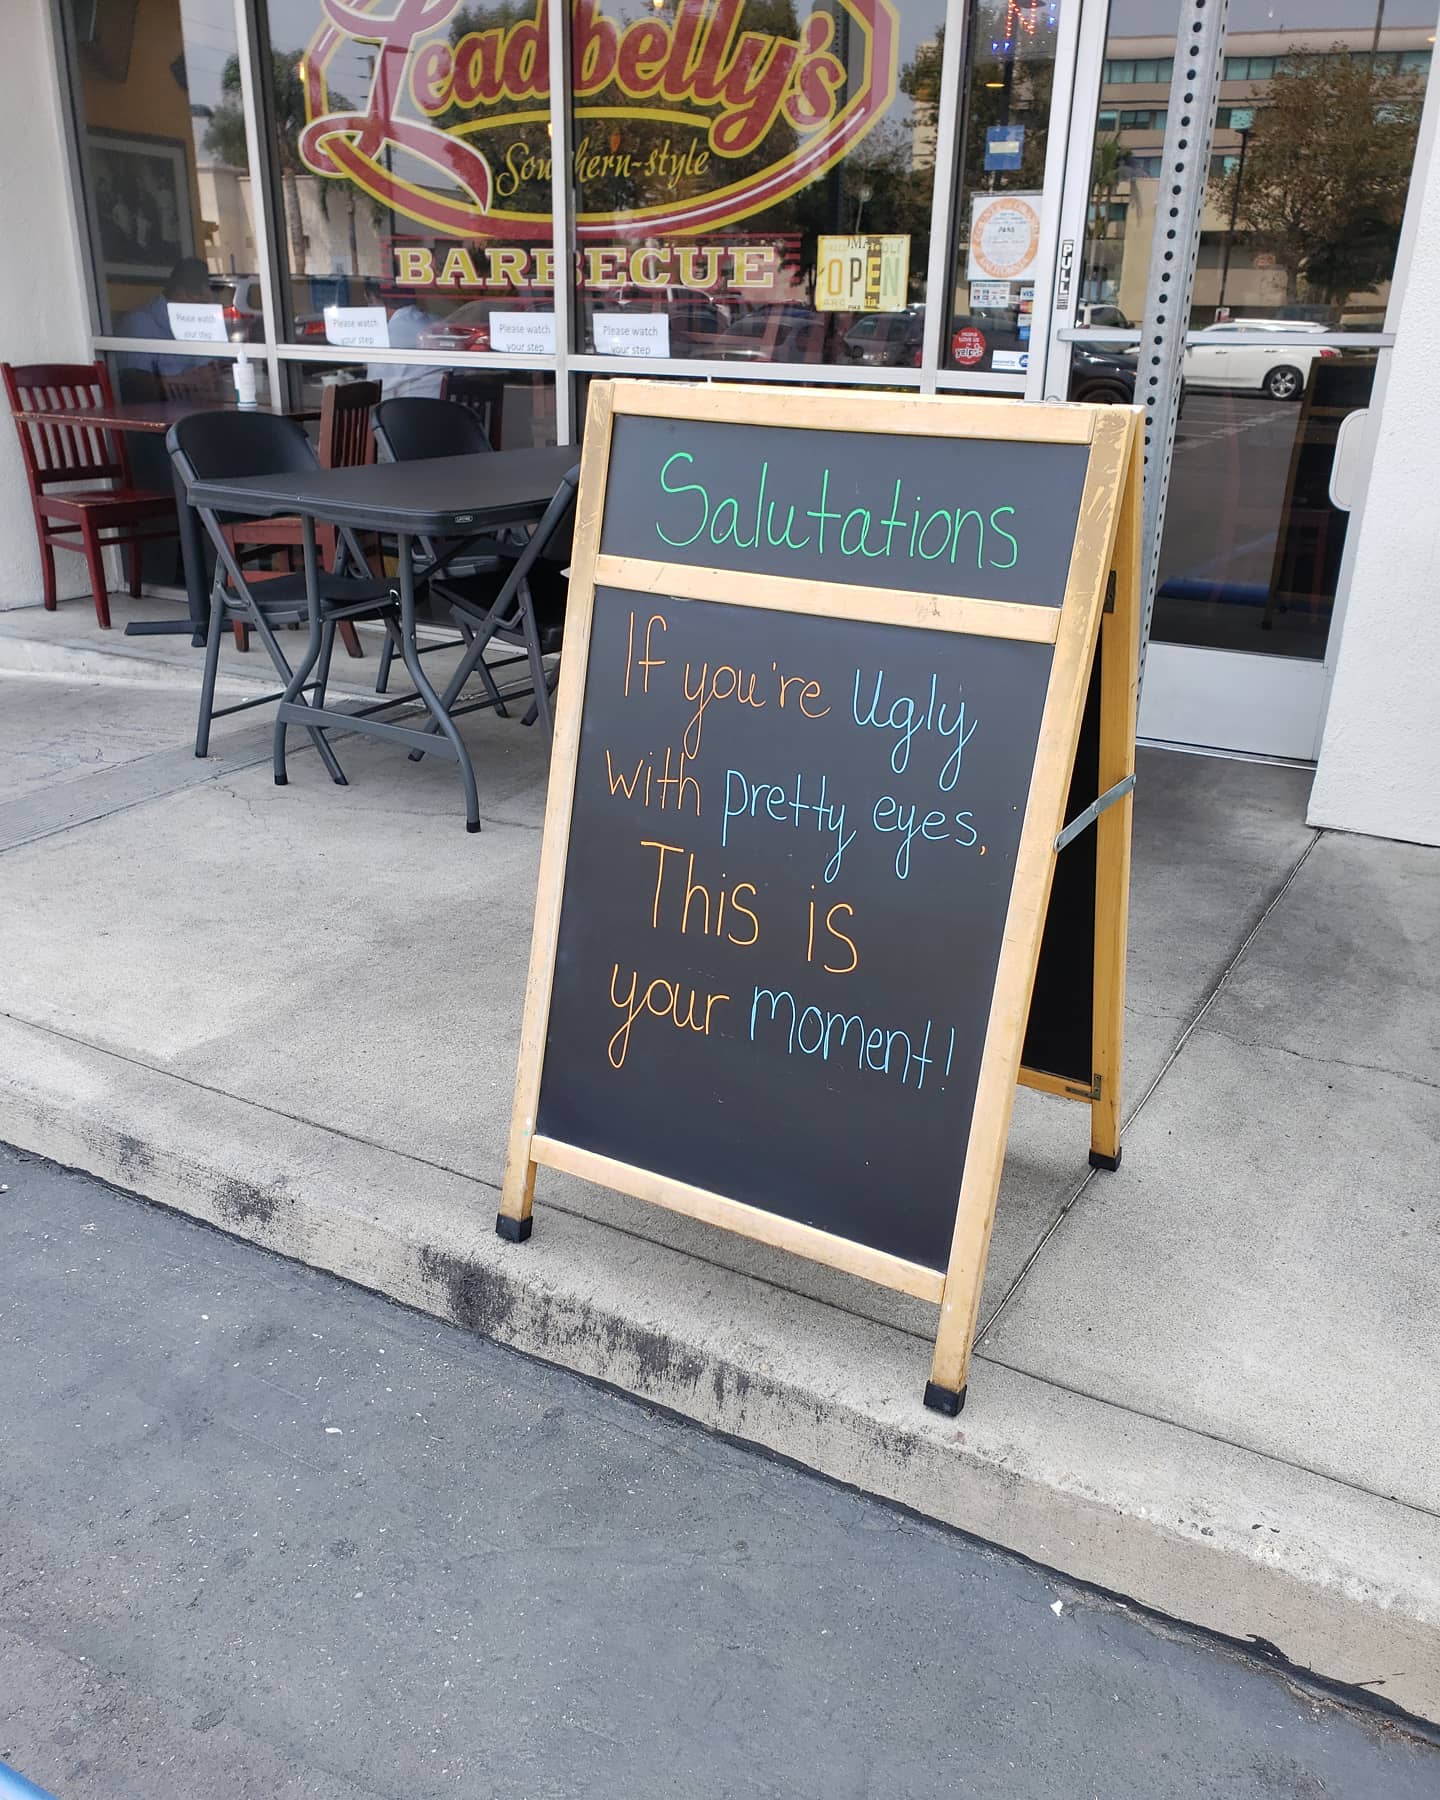 Leadbelly's
Southern-style
BARBECUE
OPEN
Please watch
your step
Please watch
your step
Please watch
your step
Please watch
your step
PULL
VISA
yelp
Salutations
If you're Ugly
with pretty eyes,
This is
your moment!